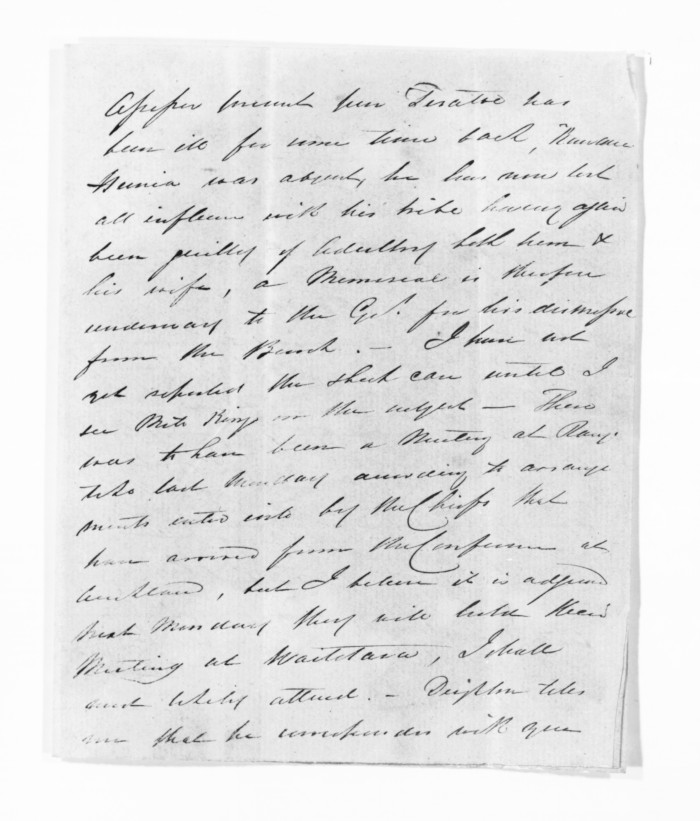 Assessor present poor has
been ill for some time back,
Hunia was absent, he has now lost
all influence with his tribe having again
been guilty of adultery both him &
his wife, a Memorial is therefore
underway to the Govt. for his dismissal
from the Bench. — I have not
yet reported the case until I
see King on the subject — There
was to have been a Meeting at
last Monday according to arrange
ments entered into by the Chiefs that
have arrived from the Conference at
Auckland, but I believe it is adjourned
next Monday they will hold their
Meeting at Waitotara, I shall
attend. — Deighton tells
me that he corresponds with you